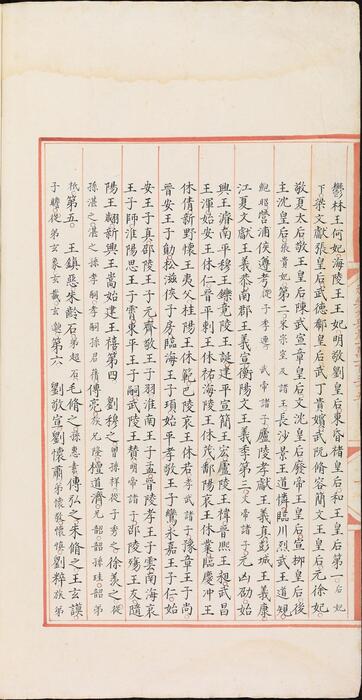 鬱林王何妃海陵王王妃明敬劉皇后東昏褚皇后和王皇后第一后妃
下梁文獻張皇后武德郗皇后武丁貴嬪武阮脩容簡文王皇后元徐妃
敬夏太后敬王皇后陳武宣章皇后文沈皇后廢帝王皇后宣柳皇后後
主沈皇后張貴妃第二宋宗室及諸王長沙景王道憐臨川烈武王道規
鮑照營浦侯遵考從子季連武帝諸子廬陵孝獻王義真彭城王義康
江夏文獻王義恭南郡王義宣衡陽文王義季第三文帝諸子元凶劭始
興王濬南平穆王鑠竟陵王誕建平宣簡王宏廬陵王禕晉熙王昶武昌
王渾始安王休仁晉平剌王休祐海陵王休茂鄱陽哀王休業臨慶沖王
休倩新野懷王夷父桂陽王休範巴陵哀王休若孝武諸子豫章王子尚
晉安王子勛松滋侯子房臨海王子頊始平孝敬王子鸞永嘉王子仁始
安王子真邵陵王子元齊敬王子羽淮南王子孟晉陵孝王子雲南海哀
王子師淮陽思王子霄東平王子嗣武陵王贊明帝諸子邵陵殤王友隨
陽王翽新興王嵩始建王禧第四 劉穆之曾孫祥從子秀之徐羨之從
孫湛之湛之孫孝嗣孝嗣孫君蒨傅亮族兄隆檀道濟兄韶韶孫珪韶弟
祗第五 王鎮惡朱齡石弟超石毛脩之孫惠素傅弘之朱脩之王玄謨
子瞻從弟玄象玄載玄邈第六 劉敬宣劉懷肅弟懷敬懷慎劉粹族弟